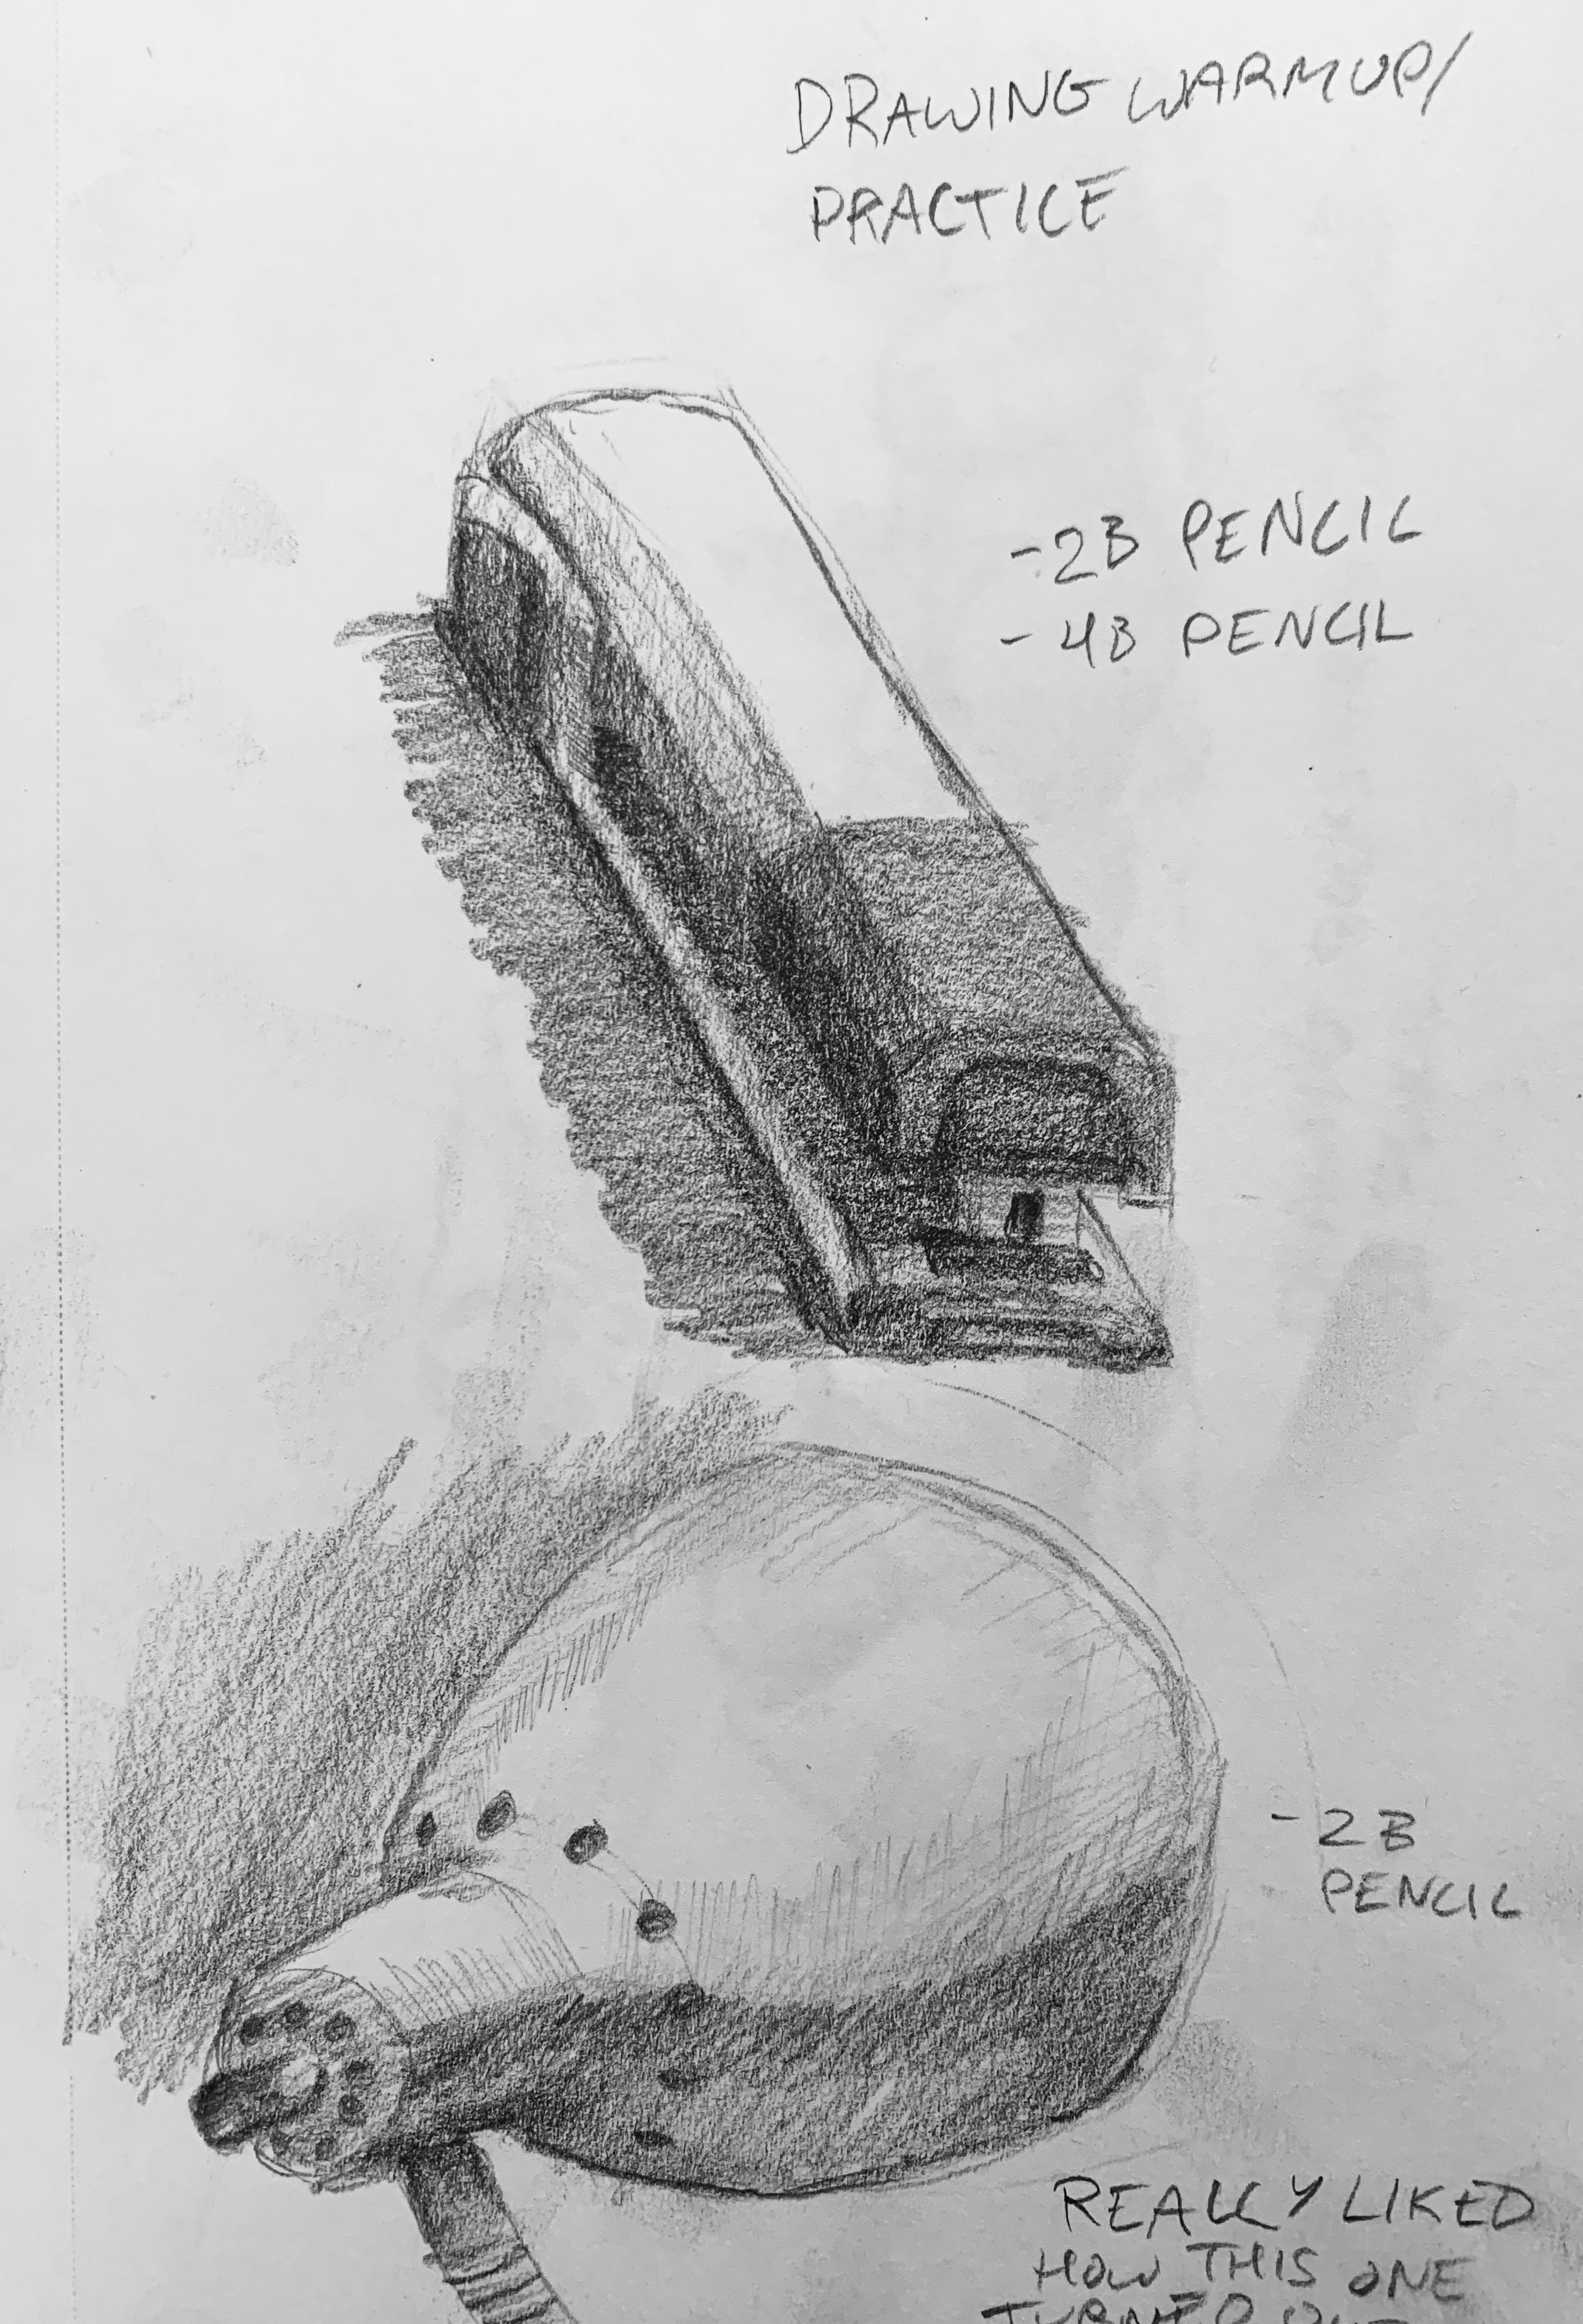 DRAWING WARMUP/
PRACTICE
-2B PENCIL
- 4B PENCIL
- 2B
PENCIL
REALLY LIKED
HOW THIS ONE
TURNED OUT